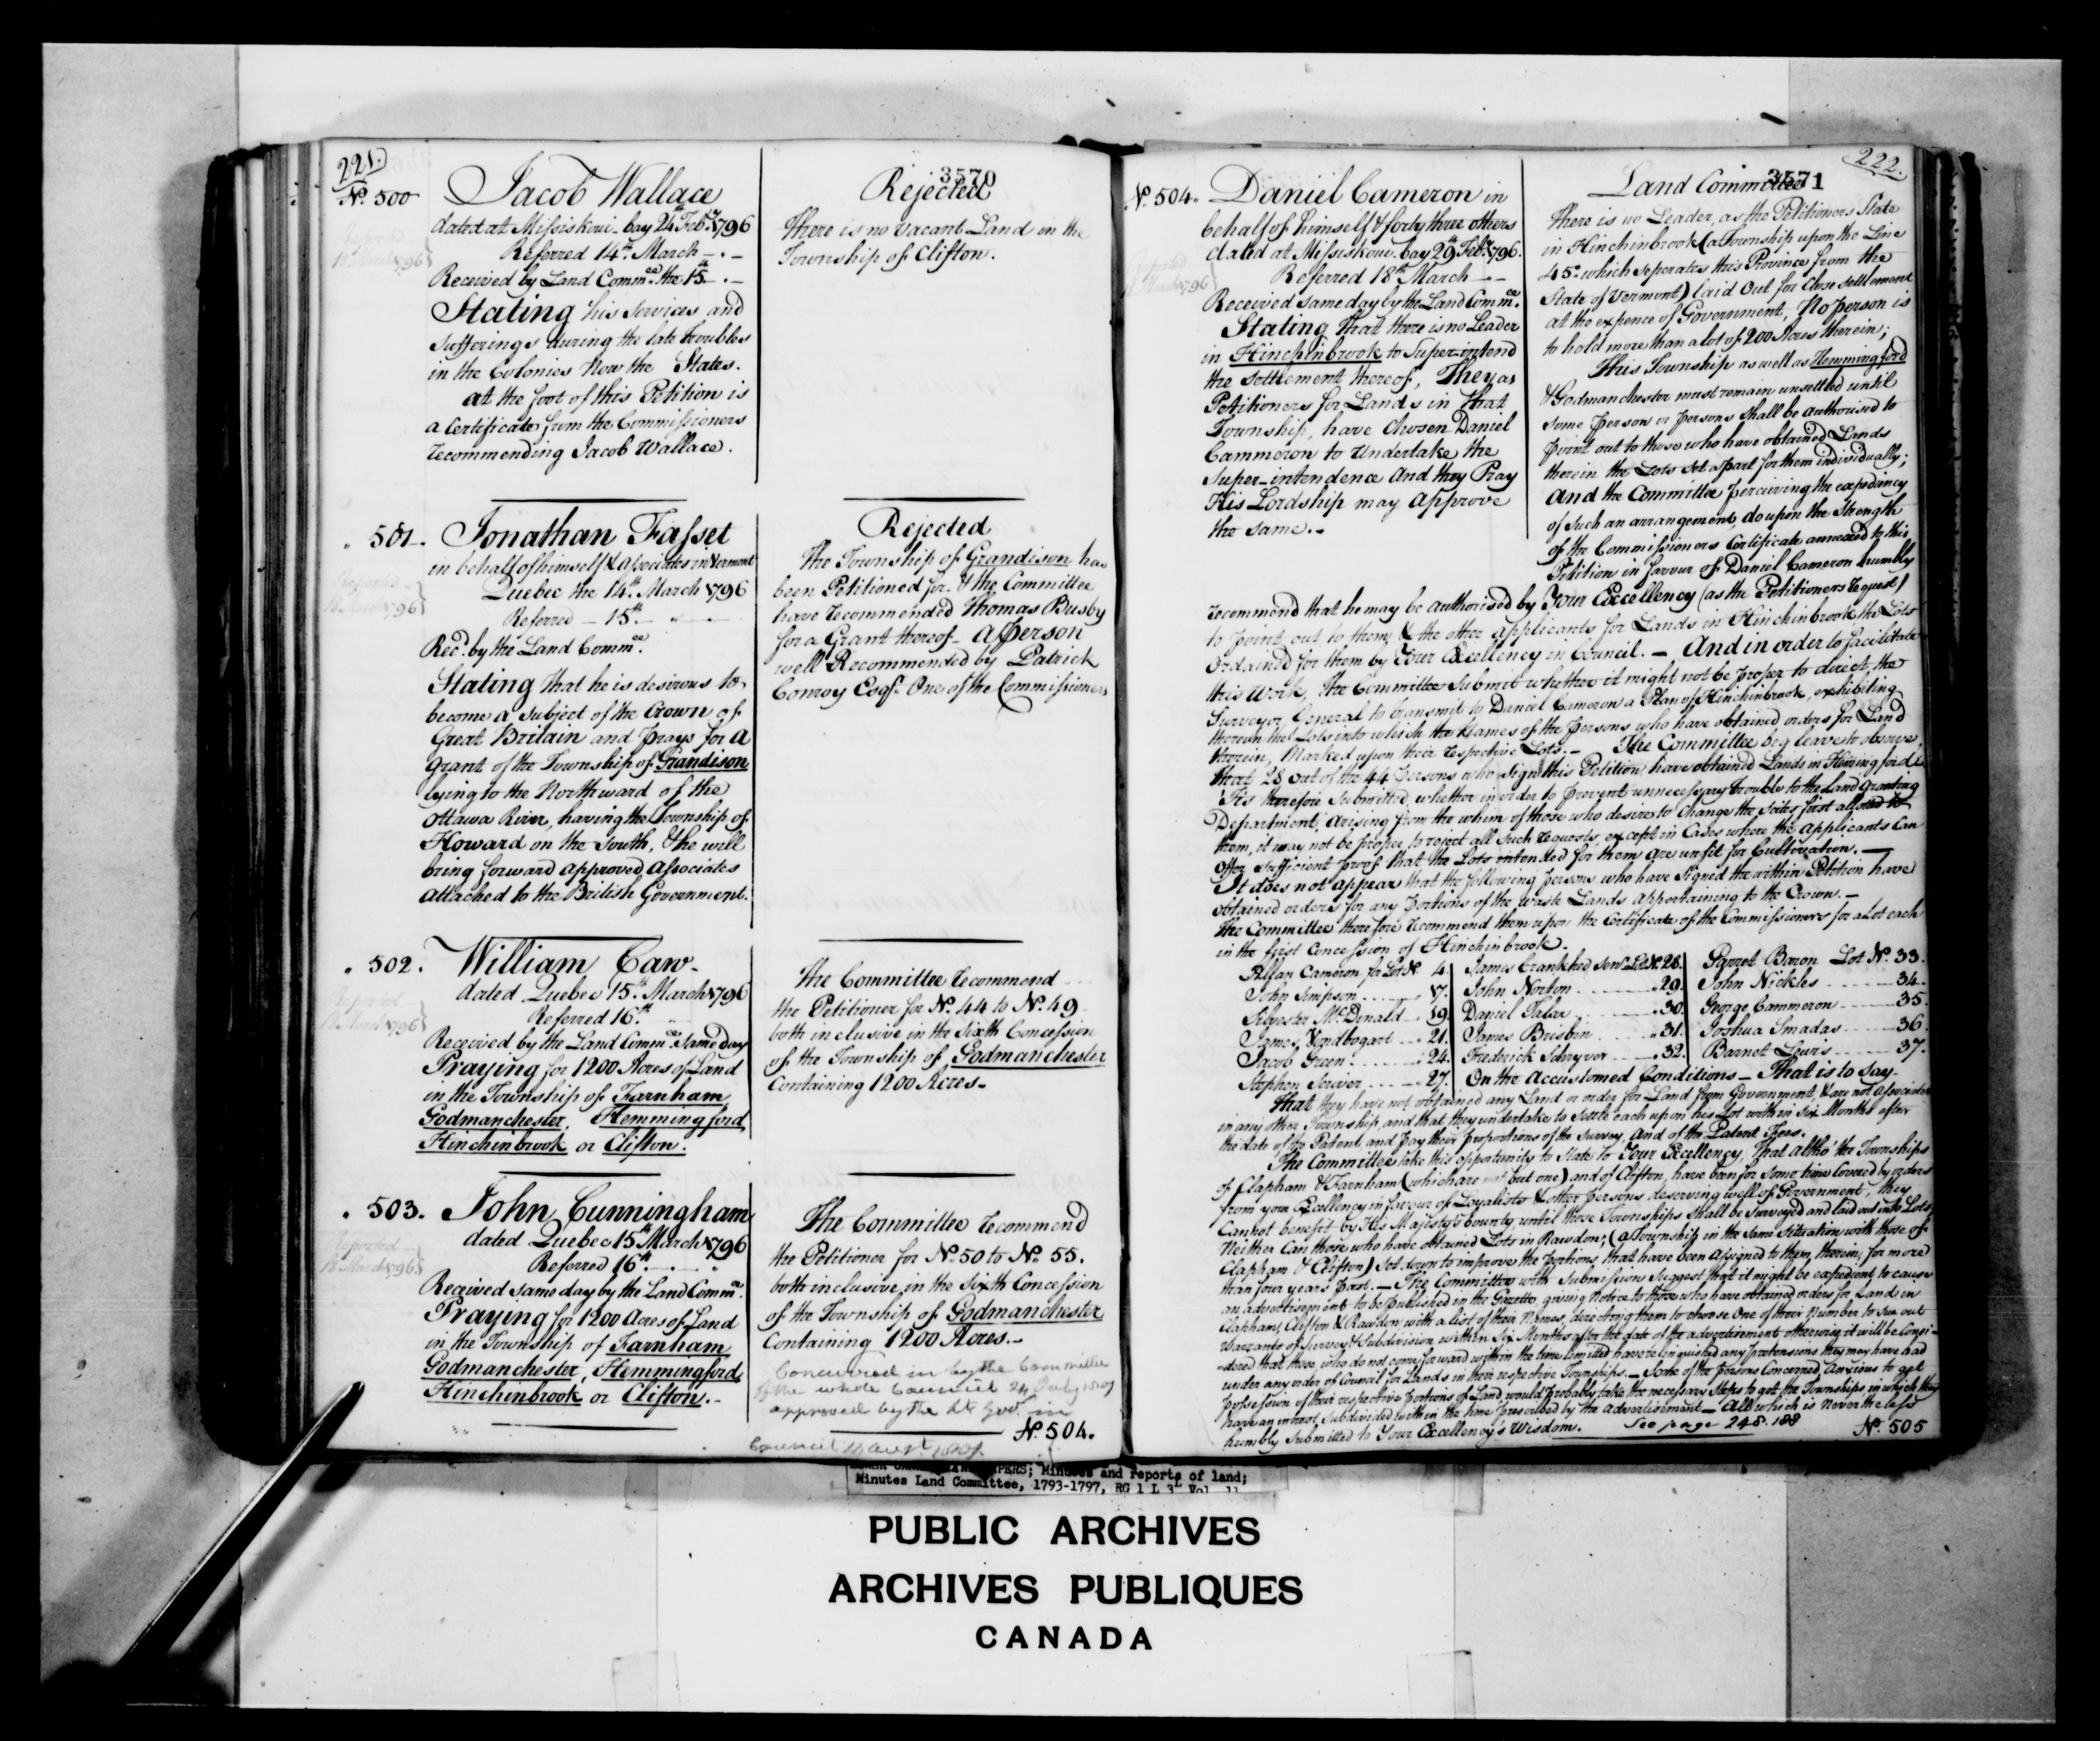 221.
3570
No. 500
Jacob Wallace
dated at Missiskoui bay 24th Feby. 1796
Referred 14th March
Received by Land Commee. the 15
Stating his Services and
Sufferings during the late troubles
in the Colonies Now the States.
at the foot of this Petition is
a Certificate from the Commissioners
recommending Jacob Wallace.
Rejected
There is no vacant Land in the
Township of Clifton.
501.
Jonathan Fasset
in behalf of himself & associates in Vermont
Quebec the 14th March 1796
Referred 15th
Recd. by the Land Commee.
Stating that he is desirous to
become a Subject of the Crown of
Great Britain and prays for a
Grant of the Township of Grandison
lying to the Northward of the
Ottawa River, having the Township of
Howard on the South, & he will
bring forward approved Associates
attached to the British Government.
Rejected
The Township of Grandison has
been Petitioned for & the Committee
have recommended Thomas Busby
for a Grant thereof - A person
well Recommended by Patrick
Conroy Esqr. One of the Commissioners
502.
William Caw
dated Quebec 15th March 1796
Referred 16th
Received by the Land Commee. Same day
Praying for 1200 Acres of Land
in the Township of Farnham
Godmanchester, Hemmingford
Hinchinbrook or Clifton.
The Committee recommend
the Petitioner for No. 44 to No. 49
both inclusive in the Sixth Concession
of the Township of Godmanchester
Containing 1200 Acres.
503.
John Cunningham
dated Quebec 15th March 1796
Referred 16th
Received same day by the Land Commee.
Praying for 1200 Acres of Land
in the Township of Farnham
Godmanchester, Hemmingford
Hinchinbrook or Clifton.-
The Committee recommend
the Petitioner for No. 50 to No. 55.
both inclusive in the Sixth Concession
of the Township of Godmanchester
Containing 1200 Acres.-
Concurred in by the Committee
of the whole Council 24 July
approved by the Lt Govr. in
Council
No. 504.
222.
3571
No. 504.
Daniel Cameron in
behalf of himself & forty three others
dated at Missiskoui bay 29th Feby. 1796.
Referred 18th March
Received same day by the Land Commee.
Stating that there is no Leader
in Hinchinbrook to Super-intend
the Settlement thereof, They as
Petitioners for Lands in that
Township, have chosen Daniel
Cammeron to undertake the
Super-intendence and they Pray
His Lordship may approve
the same.-
Land Committee
There is no Leader, as the Petitioners State
in Hinchinbrook (a Township upon the Line
45° which seperates this Province from the
State of Vermont) laid out for close settlement
at the expence of Government, No person is
to hold more than a lot of 200 Acres therein;
This Township as well as Hemmingford
& Godmanchester must remain unsettled until
some person or persons shall be authorised to
point out to those who have obtained Lands
therein the Lots set apart for them individually;
And the Committee perceiving the expediency
of such an arrangement, do upon the Strength
of the Commissioners Certificate annexed to this
Petition in favour of Daniel Cameron humbly
recommend that he may be authorised by Your Excellency (as the Petitioners request)
to point out to them, & the other applicants for Lands in Hinchinbrook, the Lots
ordained for them by Your Excellency in Council. - And in order to facilitate
this work, the Committee submit whether it might not be proper to direct the
Surveyor General to transmit to Daniel Cameron a Plan of Hinchinbrook, exhibiting
therein the Lots into which the Names of the Persons who have obtained orders for Land
therein, Marked upon their respective Lots.- The Committee beg leave to observe,
that 28 out of the 44 Persons who sign this Petition have obtained Lands in Hemingford:
'Tis therefore submitted, whether in order to prevent unnecessary trouble to the Land Granting
Department, arising from the whim of those who desire to change the Scites first allotted to
them, it may not be proper to reject all such requests, except in Cases where the applicants can
offer sufficient proof that the Lots intended for them are unfit for Cultivation.
It does not appear that the following persons who have signed the within Petition have
obtained orders for any portions of the waste Lands appertaining to the Crown.-
The Committee therefore recommend them upon the Certificate of the Commissioners for a Lot each
in the first Concession of Hinchinbrook.
Allan Cameron for Lot No. 4. James Crankhed Senr. Lot No. 28. Garret Baron Lot No. 33.
John Simpson 17. John Norton 29. John Nickles 34.
Silvester McDonald 19. Daniel Taber 30. George Cammeron 35.
James Vandbogart 21. James Brisbin 31. Joshua Smadas 36.
Jacob Green 24. Frederick Schryver 32. Barnet Lewis 37.
Stephen Scriver 27. On the accustomed Conditions - That is to say-
That they have not obtained any Land or order for Land from Government, & are not associated
in any other Township, and that they undertake to settle each upon his Lot within Six Months after
the date of the Patent, and pay their proportions of the Survey, and of the Patent Fees.
The Committee take this opportunity to State to Your Excellency, That altho' the Townships
of Clapham & Farnham (which are but one) and of Clifton, have been for some time covered by orders
from your Excellency in favour of Loyalists & other persons deserving well of Government, they
cannot benefit by His Majesty's bounty, until those Townships shall be Surveyed and laid out into Lots,
Neither Can those who have obtained Lots in Rawdon; (a Township in the same situation with those of
Clapham & Clifton) set down to improve the portions that have been assigned to them, therein, for more
than four years past. - The Committee with Submission suggest that it might be expedient to cause
an advertisement to be published in the Gazette, giving notice to those who have obtained orders for Land in
Clapham, Clifton & Rawdon with a list of their Names, directing them to choose One of their Number to sue out
Warrants of Survey & Subdivision within Six Months after the date of the advertisement otherwise it will be consi-
-dered that those who do not come forward within the time limited have relinquished any pretensions they may have had
under any order of Council for Lands in their respective Townships. - Some of the persons Concerned anxious to get
possession of their respective portions of Land, would probably take the necessary Steps to get the Townships in which they
have an interest, Subdivided within the time prescribed by the advertisement - All which is nevertheless
humbly submitted to Your Excellency's Wisdom. See page 248. 188
No. 505
Minutes and reports of land;
Minutes Land Committee, 1793-1797, RG 1 L 3L Vol. 11
PUBLIC ARCHIVES
ARCHIVES PUBLIQUES
CANADA